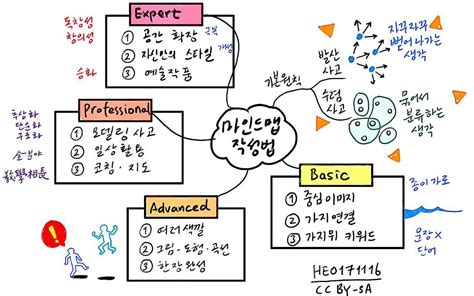 Expert
독창성
창의성
① 공간 확장
극복
② 자신만의 스타일
개성
③ 예술작품
승화
Professional
추상화
단순화
구조화
① 모델링 사고
② 일상활용
③ 코칭·지도
全분야
敎學相長
마인드맵
작성법
기본원칙
발산
사고
지꾸자꾸
뻗어나가는
생각
수렴
사고
묶어서
분류하는
생각
Basic
① 중심이미지
② 가지연결
③ 가지위 키워드
종이 가로
문장X
단어
Advanced
① 여러색깔
② 그림·도형·곡선
③ 한장완성
HE0171116
CC BY-SA